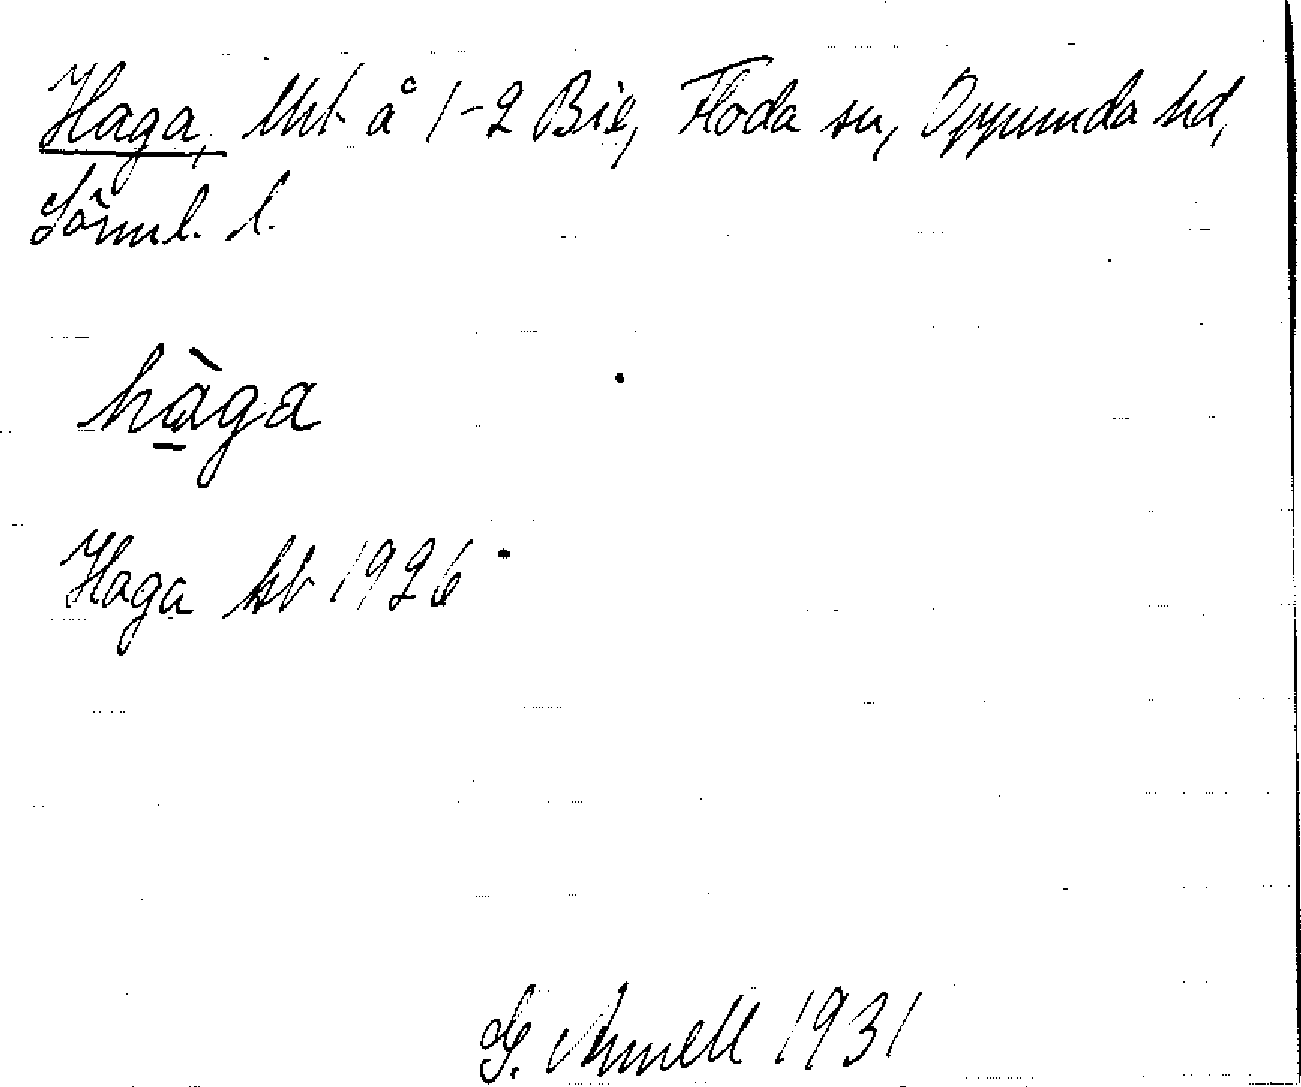 Haga, lht å 1-2 Bie, Floda sn, Oppunda hd,
Sörml. l.
hàga
Haga kb 1926
G. Annell 1931